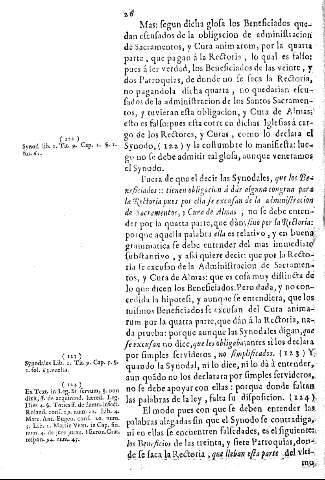 26
Mas: segun dicha glosa los Beneficiados que-
dan escusados de la obligacion de administracion
de Sacramentos, y Cura animarom, por la quarta
parte, que pagan á la Rectoria, lo qual es falso:
pues á ser verdad, los Beneficiados de las veinte, y
dos Patroquias, de donde no se saca la Rectoria,
no pagandola dicha quarta, no quedarian escu-
sados de la administracion de los Santos Sacramen-
tos, y tuvieran esta obligacion, y Cura de Almas;
esto es falso: pues esta corre en dichas Iglesias á car-
go de los Rectores, y Curas, como lo declara el
Synodo, (122) y la costumbre lo manifiesta: lue-
go no se debe admitir tal glosa, aunque veneramos
el Synodo.
(122)
Synod. lib. 2. Tit. 9. Cap. 1. §. 1.
fol. 61.
Fuera de que el decir las Synodales, que los Be-
neficiados:: tienen obligacion á dar alguna congrua para
la Rectoria pues por ella se escusan de la administracion
de Sacramentos, y Cura de Almas, no se debe enten-
der por la quarta parte, que dán, sino por la Rectoria:
porque aquella palabra ella es relativo, y en buena
grammatica se debe entender del mas inmediato
substantivo, y asi quiere decir: que por la Recto-
ria se escusan de la Administracion de Sacramen-
tos, y Cura de Almas: que es cosa muy distincta de
lo que dicen los Beneficiados. Pero dada, y no con-
cedida la hipotesi, y aunque se entendiera, que los
mismos Beneficiados se escusan del Cura anima-
rum por la quarta parte, que dán á la Rectoria, na-
da prueba: porque aunque las Synodales digan, que
se escusan no dice, que los obligue antes si los declara
por simples servideros, no simplificados. (123) Y
quando la Synodal, ni lo dice, ni lo dá à entender,
aun quádo no los declarara por simples servideros,
no se debe apoyar con ellas: porque donde faltan
las palabras de la ley, falta su disposicion. (124)
(123)
Synodales Lib. 2. Tit. 9. Cap. 5. §.
1. fol. 63. vuelta.
(124)
El modo pues con que se deben entender las
palabras alegadas sin que el Synodo se contradiga,
ni en ellas se encuentren falsedades, es el siguiente:
los Beneficios de las treinta, y siete Patroquias, don-
de se saca la Rectoria, que llaban esta parte del ulti-
mo